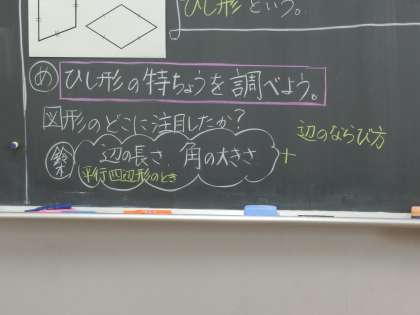 ひし形という。
め ひし形の特ちょうを調べよう。
図形のどこに注目したか？
辺の長さ、角の大きさ + 辺のならび方
平行四辺形のとき